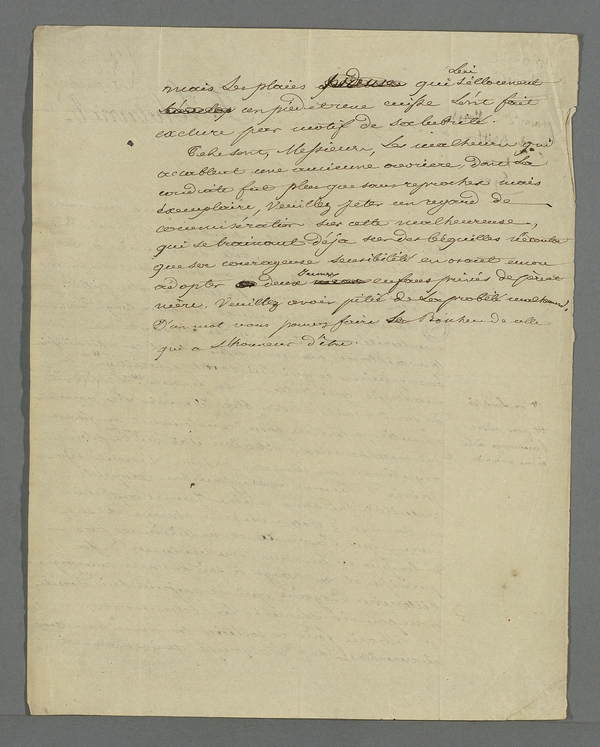 lui
mais ses plaies qui s'éllevoient
un pied et une cuisse l'ont fait
exclure par motif de salubrité.
Tels sont, Messieurs, les malheurs qui
accablent une ancienne ouvriere, dont la
conduite fut plus que sans reproches mais
exemplaire, Veuillez jeter un regard de
commisération sur cette malheureuse,
qui se trainant déja sur des béquilles n'écouta
que sa courageuse sensibilité en osant encore
adopter deux jeunes enfans privés de père et
mère. Veuillez avoir pitié de sa probité malheureuse,
D'un mot vous pouvez faire le Bonheur de celle
qui a l'honneur d'être.